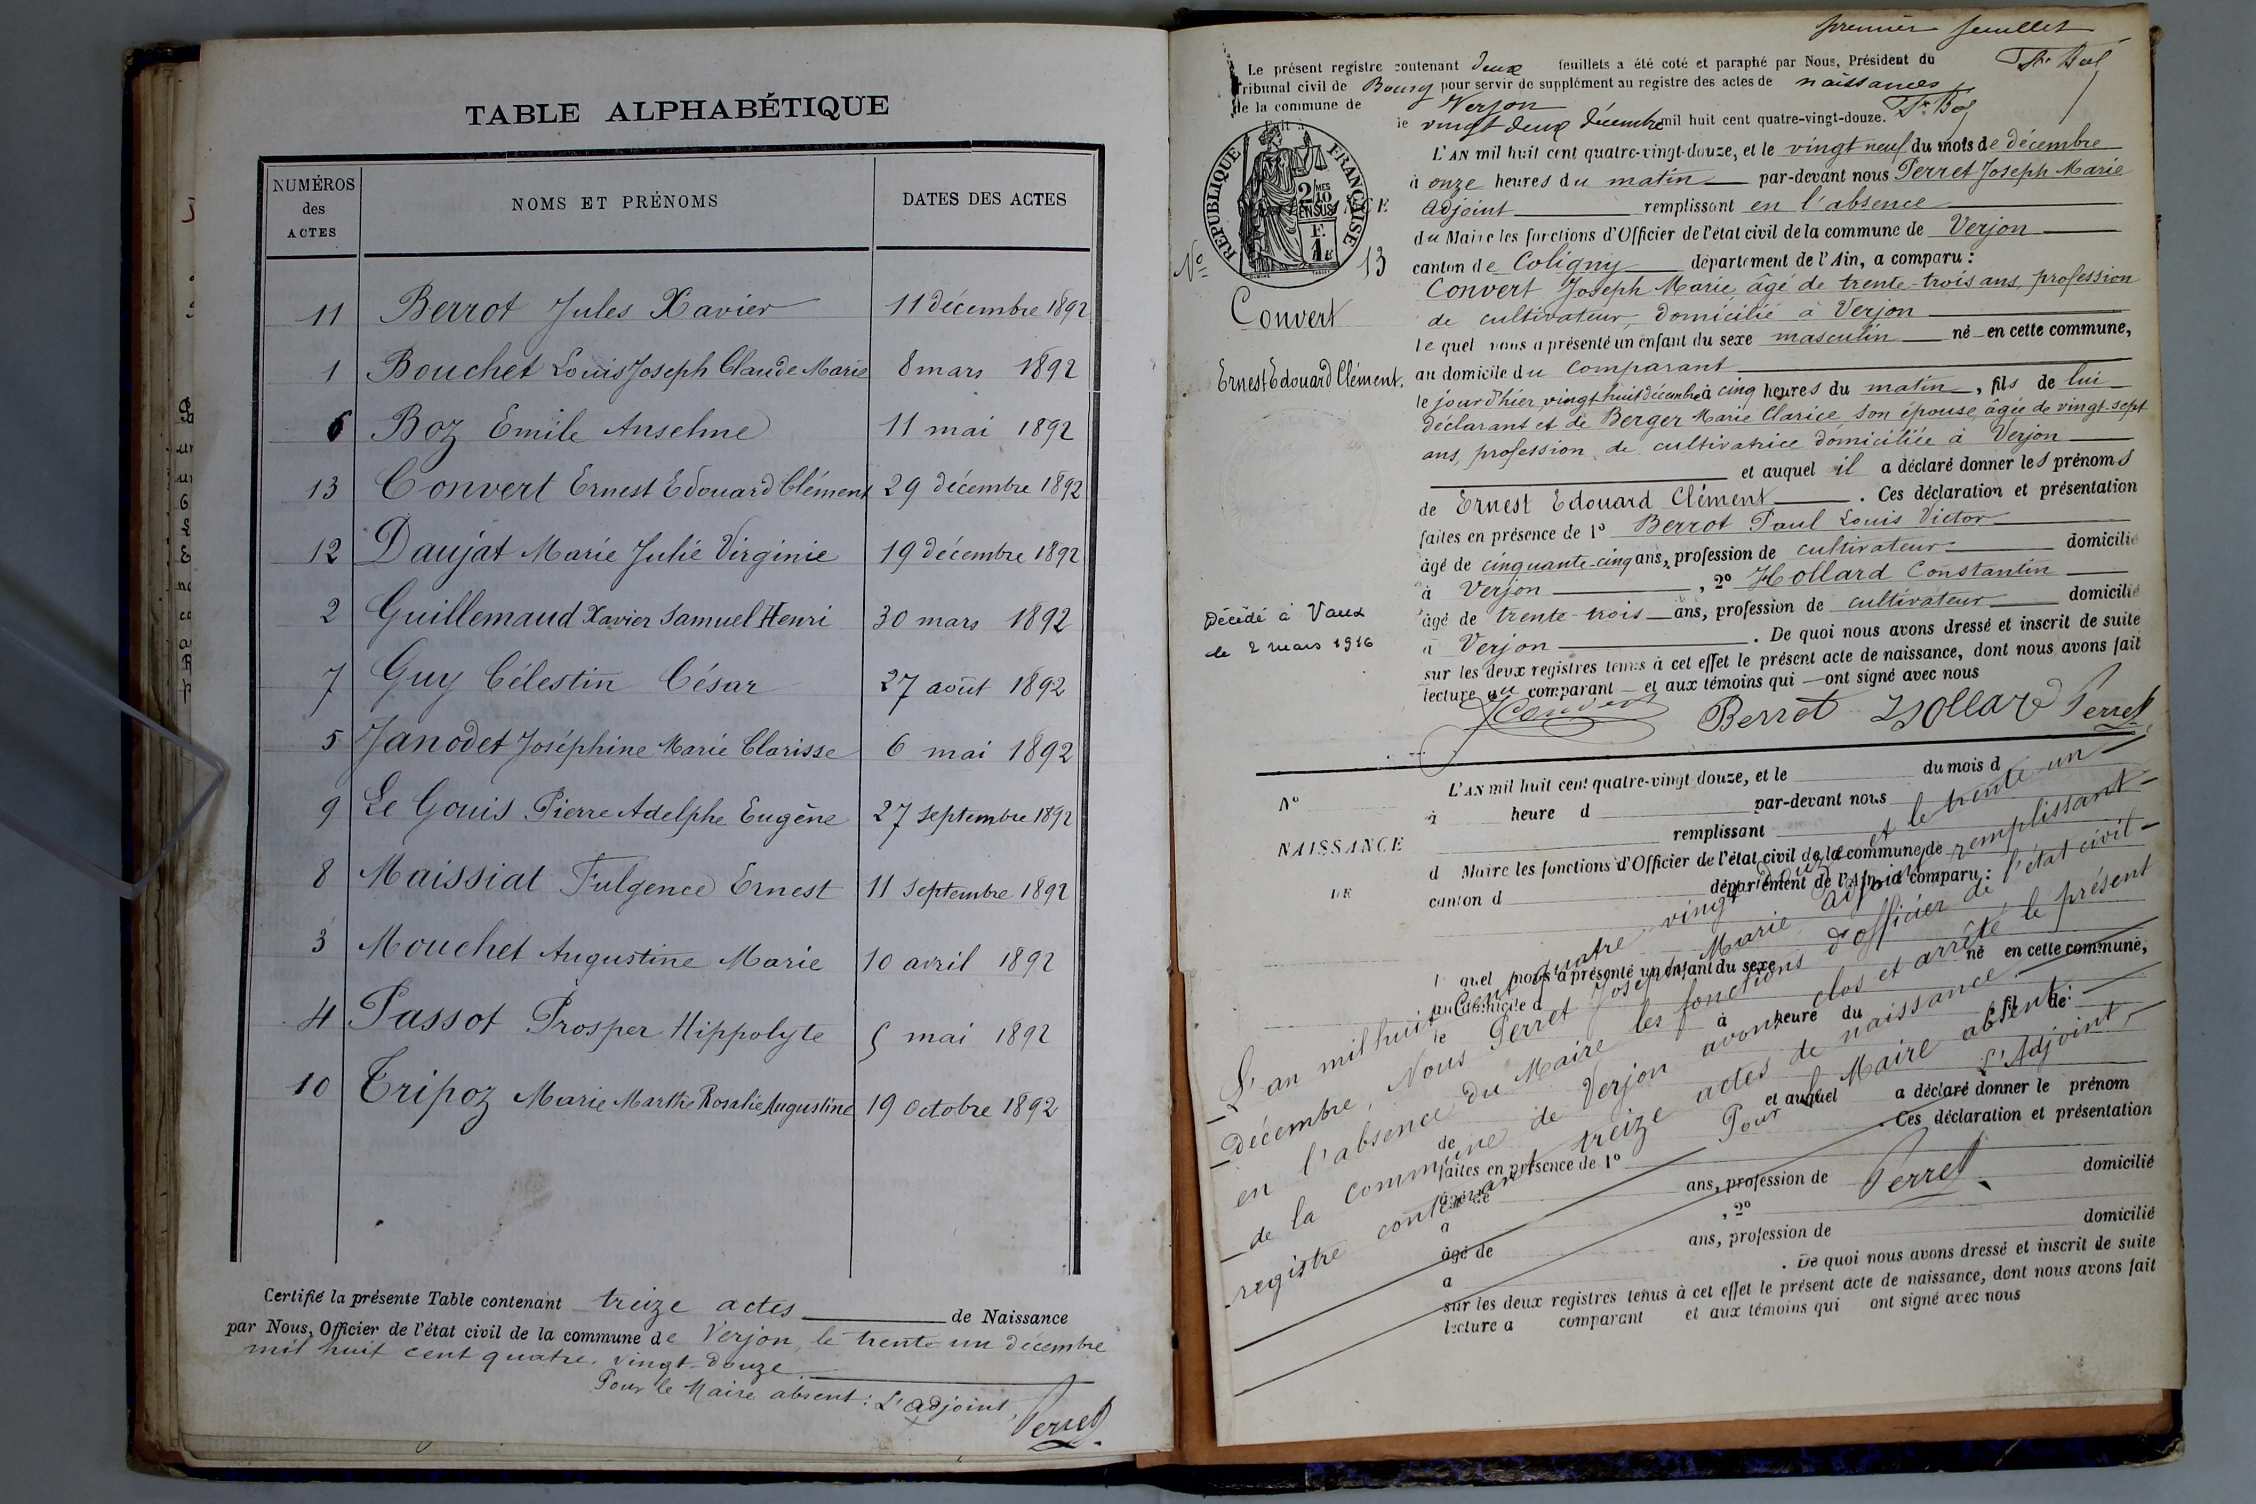 TABLE ALPHABÉTIQUE
NUMÉROS des ACTES
NOMS ET PRÉNOMS
DATES DES ACTES
11 Berrot Jules Xavier 11 décembre 1892
1 Bouchet Louis Joseph Claude Marie 8 mars 1892
6 Boz Emile Anselme 11 mai 1892
13 Convert Ernest Edouard Clément 29 décembre 1892
12 Daujat Marie Julie Virginie 19 décembre 1892
2 Guillemaud Xavier Samuel Henri 30 mars 1892
7 Guy Célestin César 27 août 1892
5 Janodet Joséphine Marie Clarisse 6 mai 1892
9 Le Gouis Pierre Adelphe Eugène 27 septembre 1892
8 Maissiat Fulgence Ernest 11 septembre 1892
3 Mouchet Augustine Marie 10 avril 1892
4 Passot Prosper Hippolyte 5 mai 1892
10 Tripoz Marie Marthe Rosalie Augustine 19 octobre 1892
Certifié la présente Table contenant treize actes de Naissance
par Nous, Officier de l'état civil de la commune de Verjon, le trente un décembre
mil huit cent quatre-vingt-douze
Pour le Maire absent : L'adjoint,
Perret
premier feuillet
Le présent registre contenant deux feuillets a été coté et paraphé par Nous, Président du
Tribunal civil de Bourg pour servir de supplément au registre des actes de naissances
de la commune de Verjon
le vingt deux décembre mil huit cent quatre-vingt-douze.
RÉPUBLIQUE FRANÇAISE
2/10 MES EN SUS
1F
L'AN mil huit cent quatre-vingt-douze, et le vingt neuf du mois de décembre
à onze heures du matin par-devant nous Perret Joseph Marie
adjoint remplissant en l'absence
du Maire les fonctions d'Officier de l'état civil de la commune de Verjon
No 13
canton de Coligny département de l'Ain, a comparu :
Convert Joseph Marie âgé de trente-trois ans, profession
Convert
de cultivateur, domicilié à Verjon
lequel nous a présenté un enfant du sexe masculin né en cette commune,
Ernest Edouard Clément.
au domicile du comparant
le jour d'hier vingt huit décembre à cinq heures du matin, fils de lui
déclarant et de Berger Marie Clarice son épouse âgée de vingt-sept
ans, profession de cultivatrice domiciliée à Verjon
et auquel il a déclaré donner les prénoms
de Ernest Edouard Clément. Ces déclaration et présentation
faites en présence de 1º Berrot Paul Louis Victor
âgé de cinquante-cinq ans, profession de cultivateur domicilié
à Verjon, 2º Hollard Constantin
Décédé à Vaux
le 2 mars 1916
âgé de trente-trois ans, profession de cultivateur domicilié
à Verjon. De quoi nous avons dressé et inscrit de suite
sur les deux registres tenus à cet effet le présent acte de naissance, dont nous avons fait
lecture au comparant et aux témoins qui ont signé avec nous
Convert Berrot Hollard Perret
L'AN mil huit cent quatre-vingt douze, et le du mois d
No
à heure d par-devant nous
NAISSANCE
remplissant
d Maire les fonctions d'Officier de l'état civil de la commune de
DE
canton d département de l'Ain, a comparu :
l quel nous a présenté un enfant du sexe né en cette commune,
au domicile d
le à heure du , fil de
et auquel a déclaré donner le prénom
de . Ces déclaration et présentation
faites en présence de 1º
âgé de ans, profession de domicilié
à , 2º
âgé de ans, profession de domicilié
à . De quoi nous avons dressé et inscrit de suite
sur les deux registres tenus à cet effet le présent acte de naissance, dont nous avons fait
lecture a comparant et aux témoins qui ont signé avec nous
L'an mil huit cent quatre vingt douze et le trente un
décembre, Nous Perret Joseph Marie adjoint remplissant
en l'absence du Maire les fonctions d'officier de l'état civil
de la commune de Verjon avons clos et arrêté le présent
registre contenant treize actes de naissance
Pour le Maire absent :
L'Adjoint,
Perret